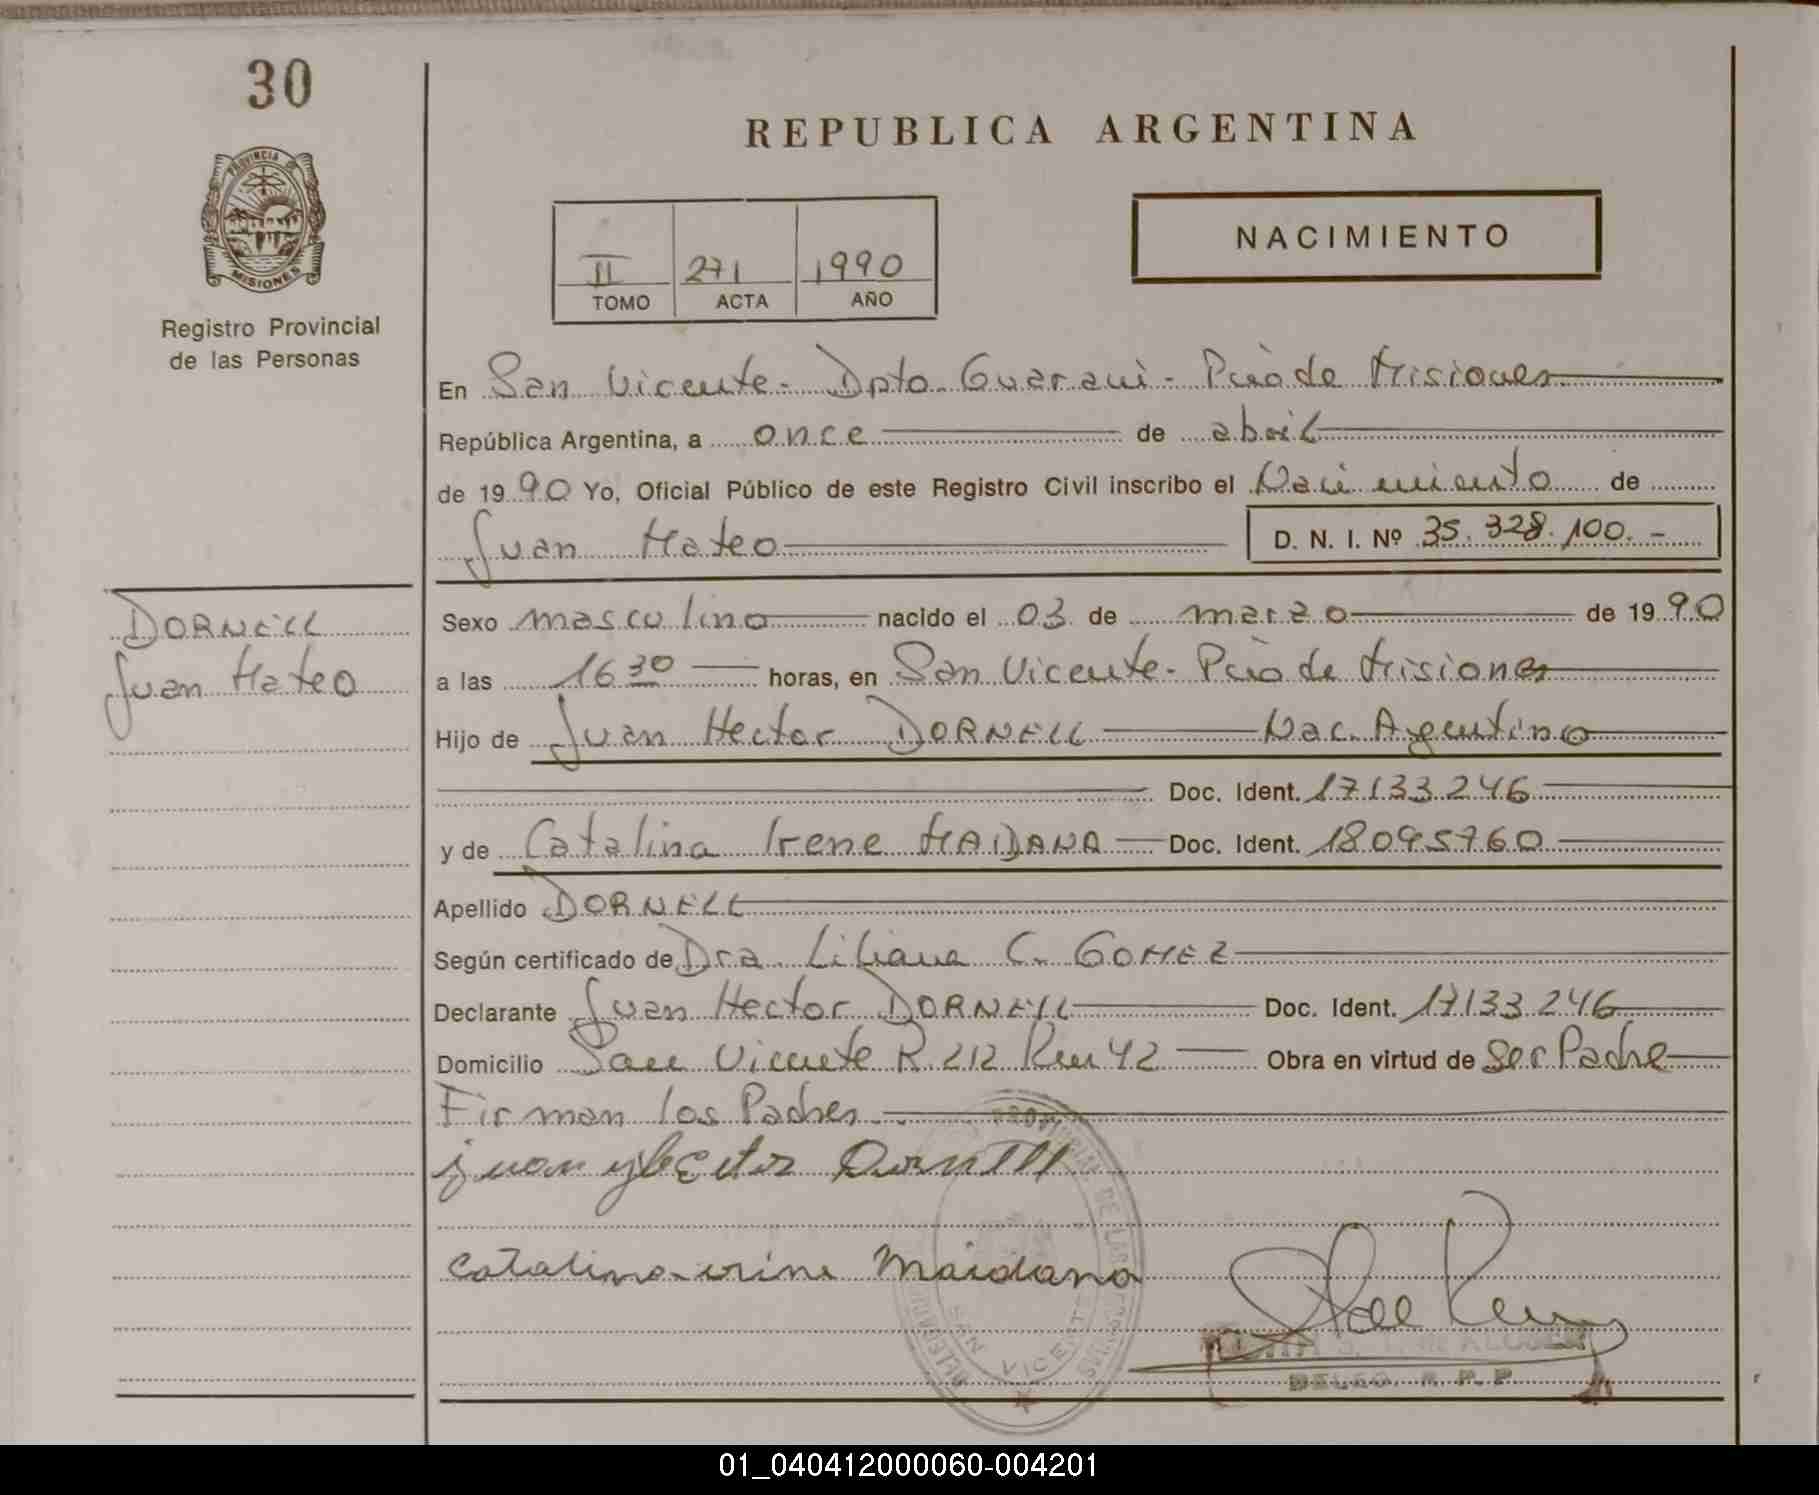 30
PROVINCIA DE
MISIONES
Registro Provincial
de las Personas
REPUBLICA ARGENTINA
NACIMIENTO
II 271 1990
TOMO ACTA AÑO
En San Vicente - Dpto. Guarani - Pcia de Misiones
República Argentina, a once de abril
de 1990 Yo, Oficial Público de este Registro Civil inscribo el Nacimiento de
Juan Mateo D. N. I. Nº 35.328.100.-
DORNELL
Juan Mateo
Sexo masculino nacido el 03 de marzo de 1990
a las 16 30 horas, en San Vicente - Pcia de Misiones
Hijo de Juan Hector DORNELL Nac. Argentino
Doc. Ident. 17133246
y de Catalina Irene MAIDANA Doc. Ident. 18095760
Apellido DORNELL
Según certificado de Dra. Liliana C. GOMEZ
Declarante Juan Hector DORNELL Doc. Ident. 17133246
Domicilio San Vicente R. 212 Km 42 Obra en virtud de Ser Padre
Firman los Padres.
juan hector Dornell
catalina irine Maidana
SAN VICENTE
DELEG. R. P. P.
01_040412000060-004201